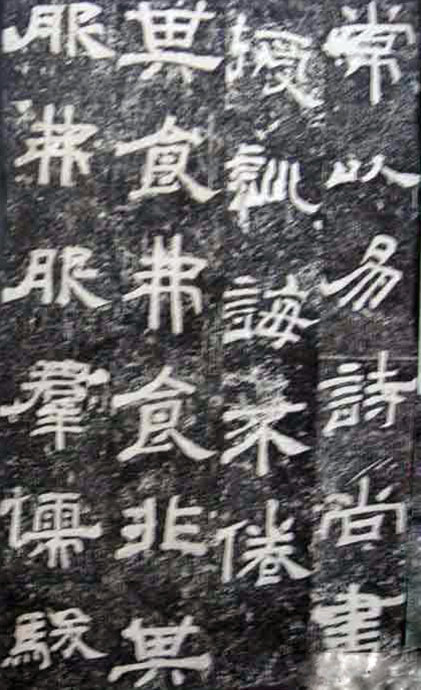 常以易詩尚書
授訓誨未倦
其食弗食非其
服弗服羣儒駿